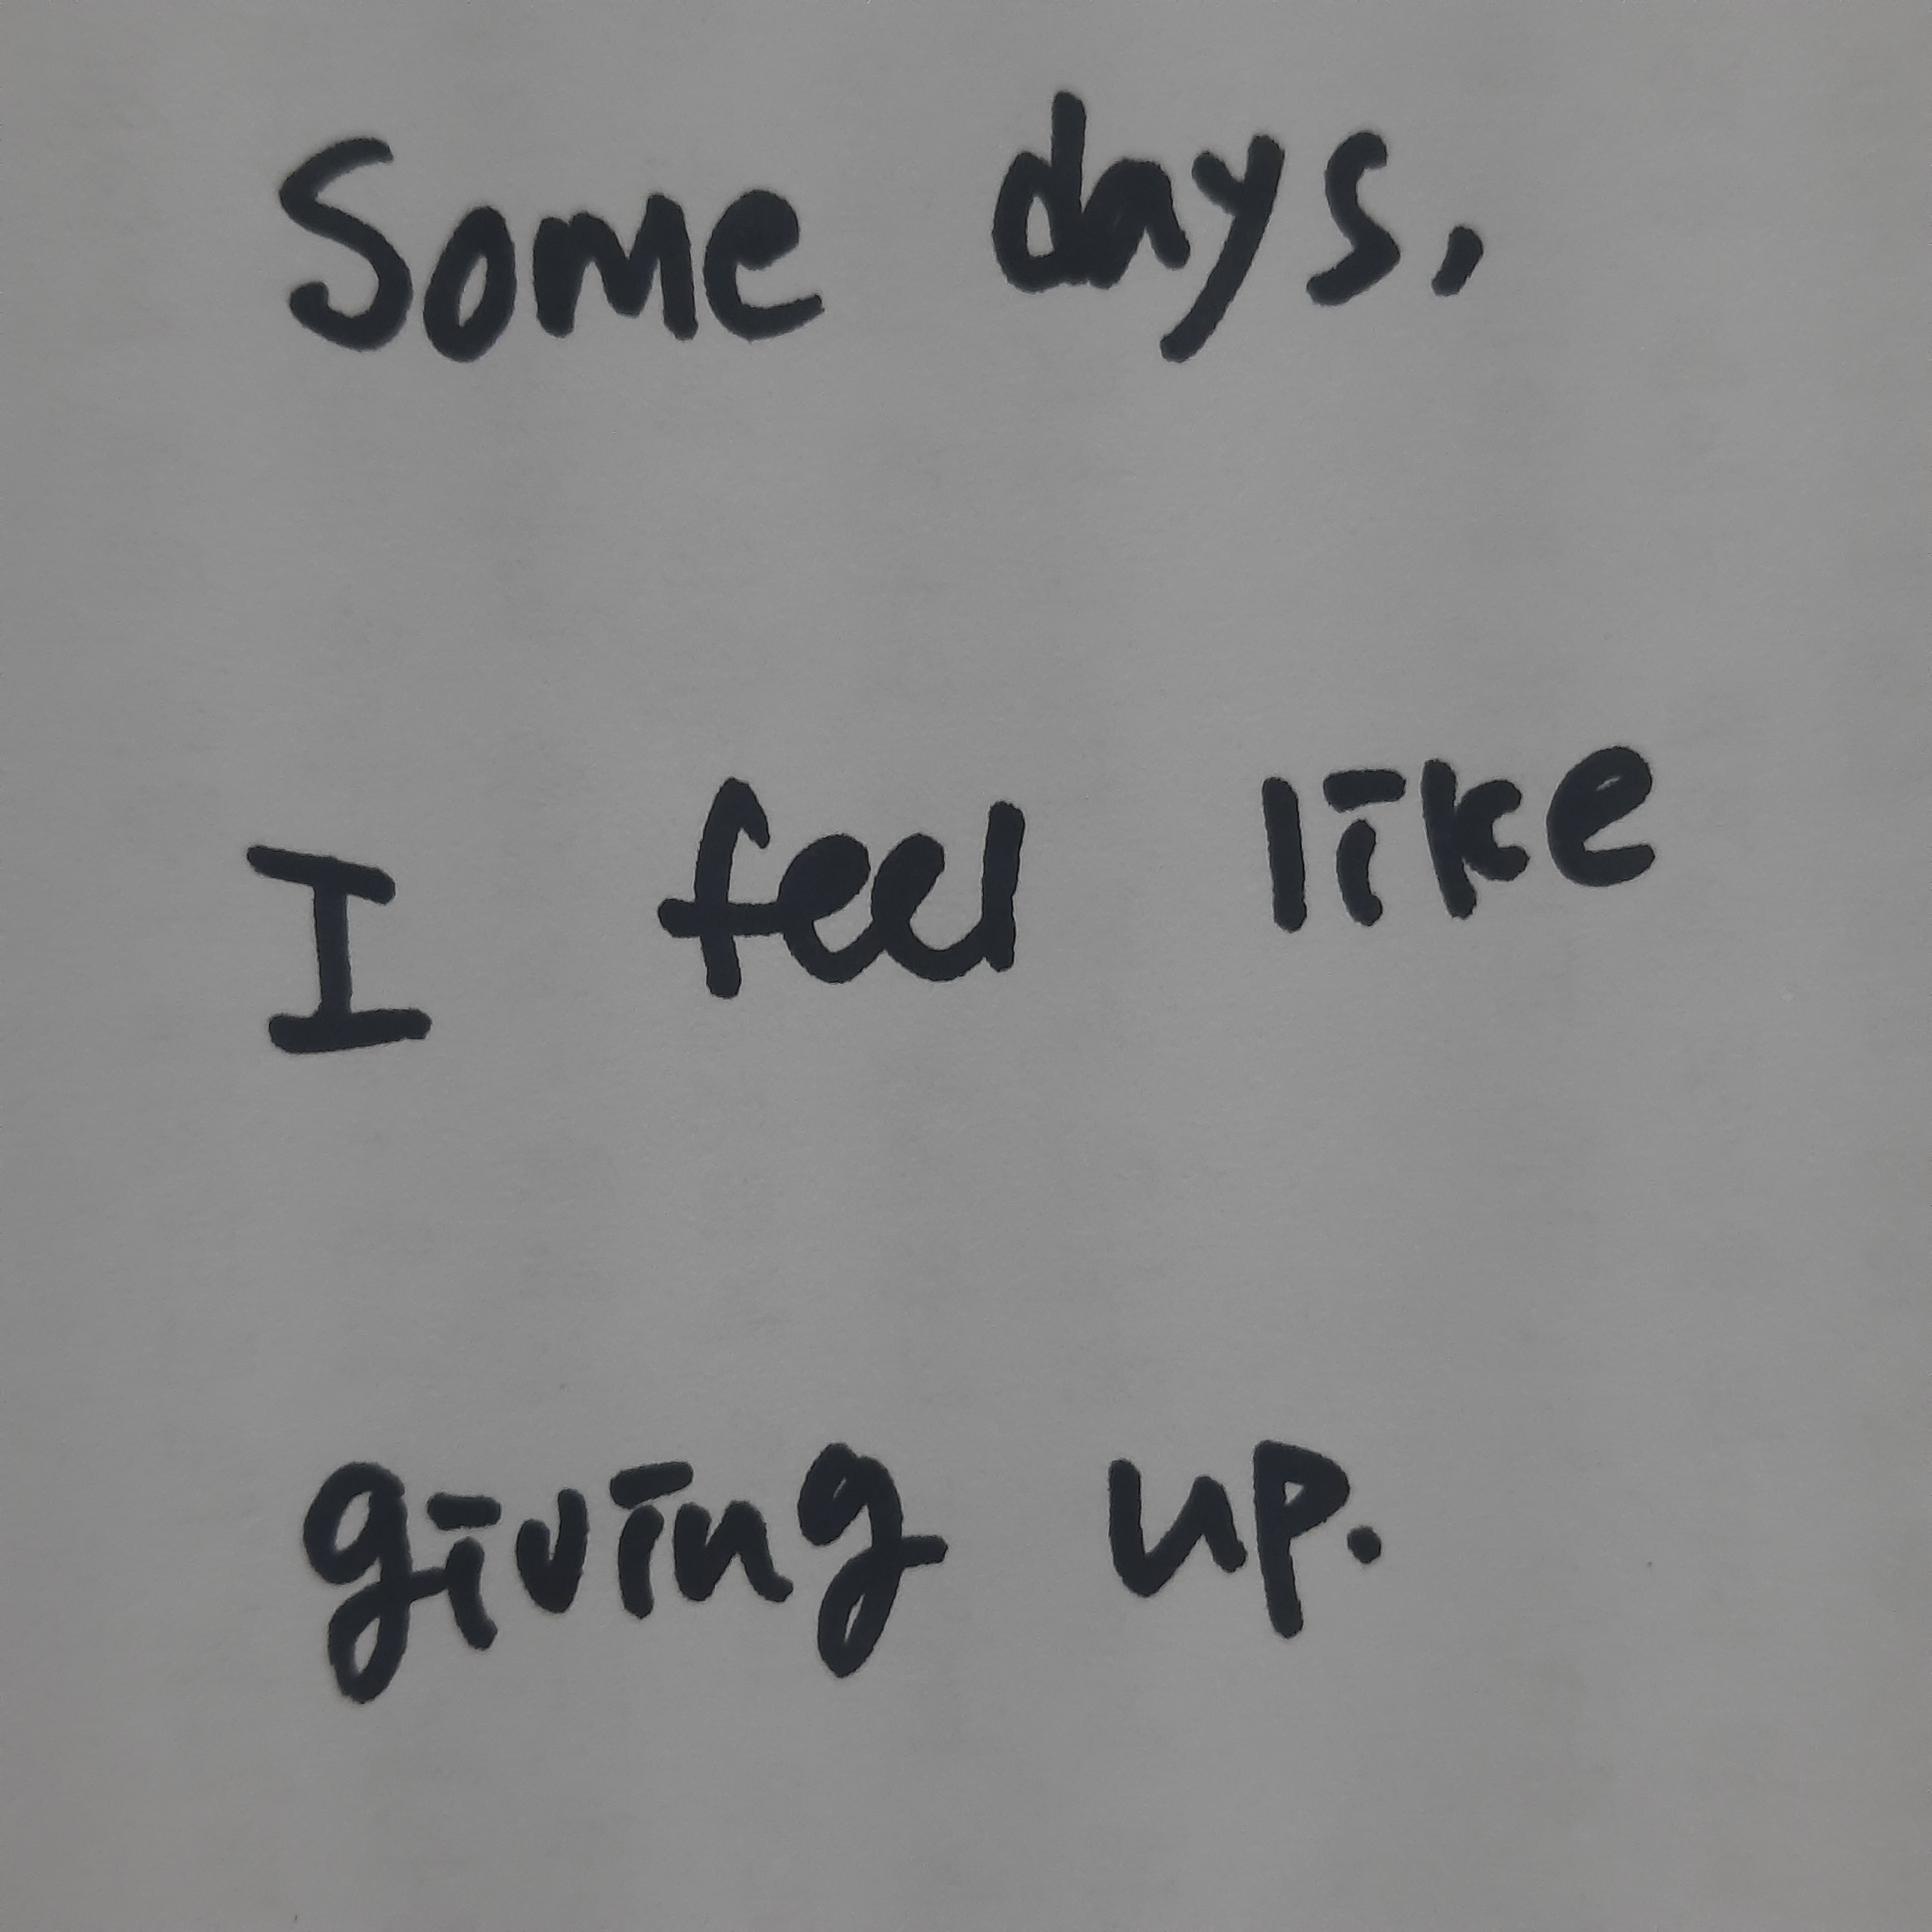 Some days,
I feel like
giving up.